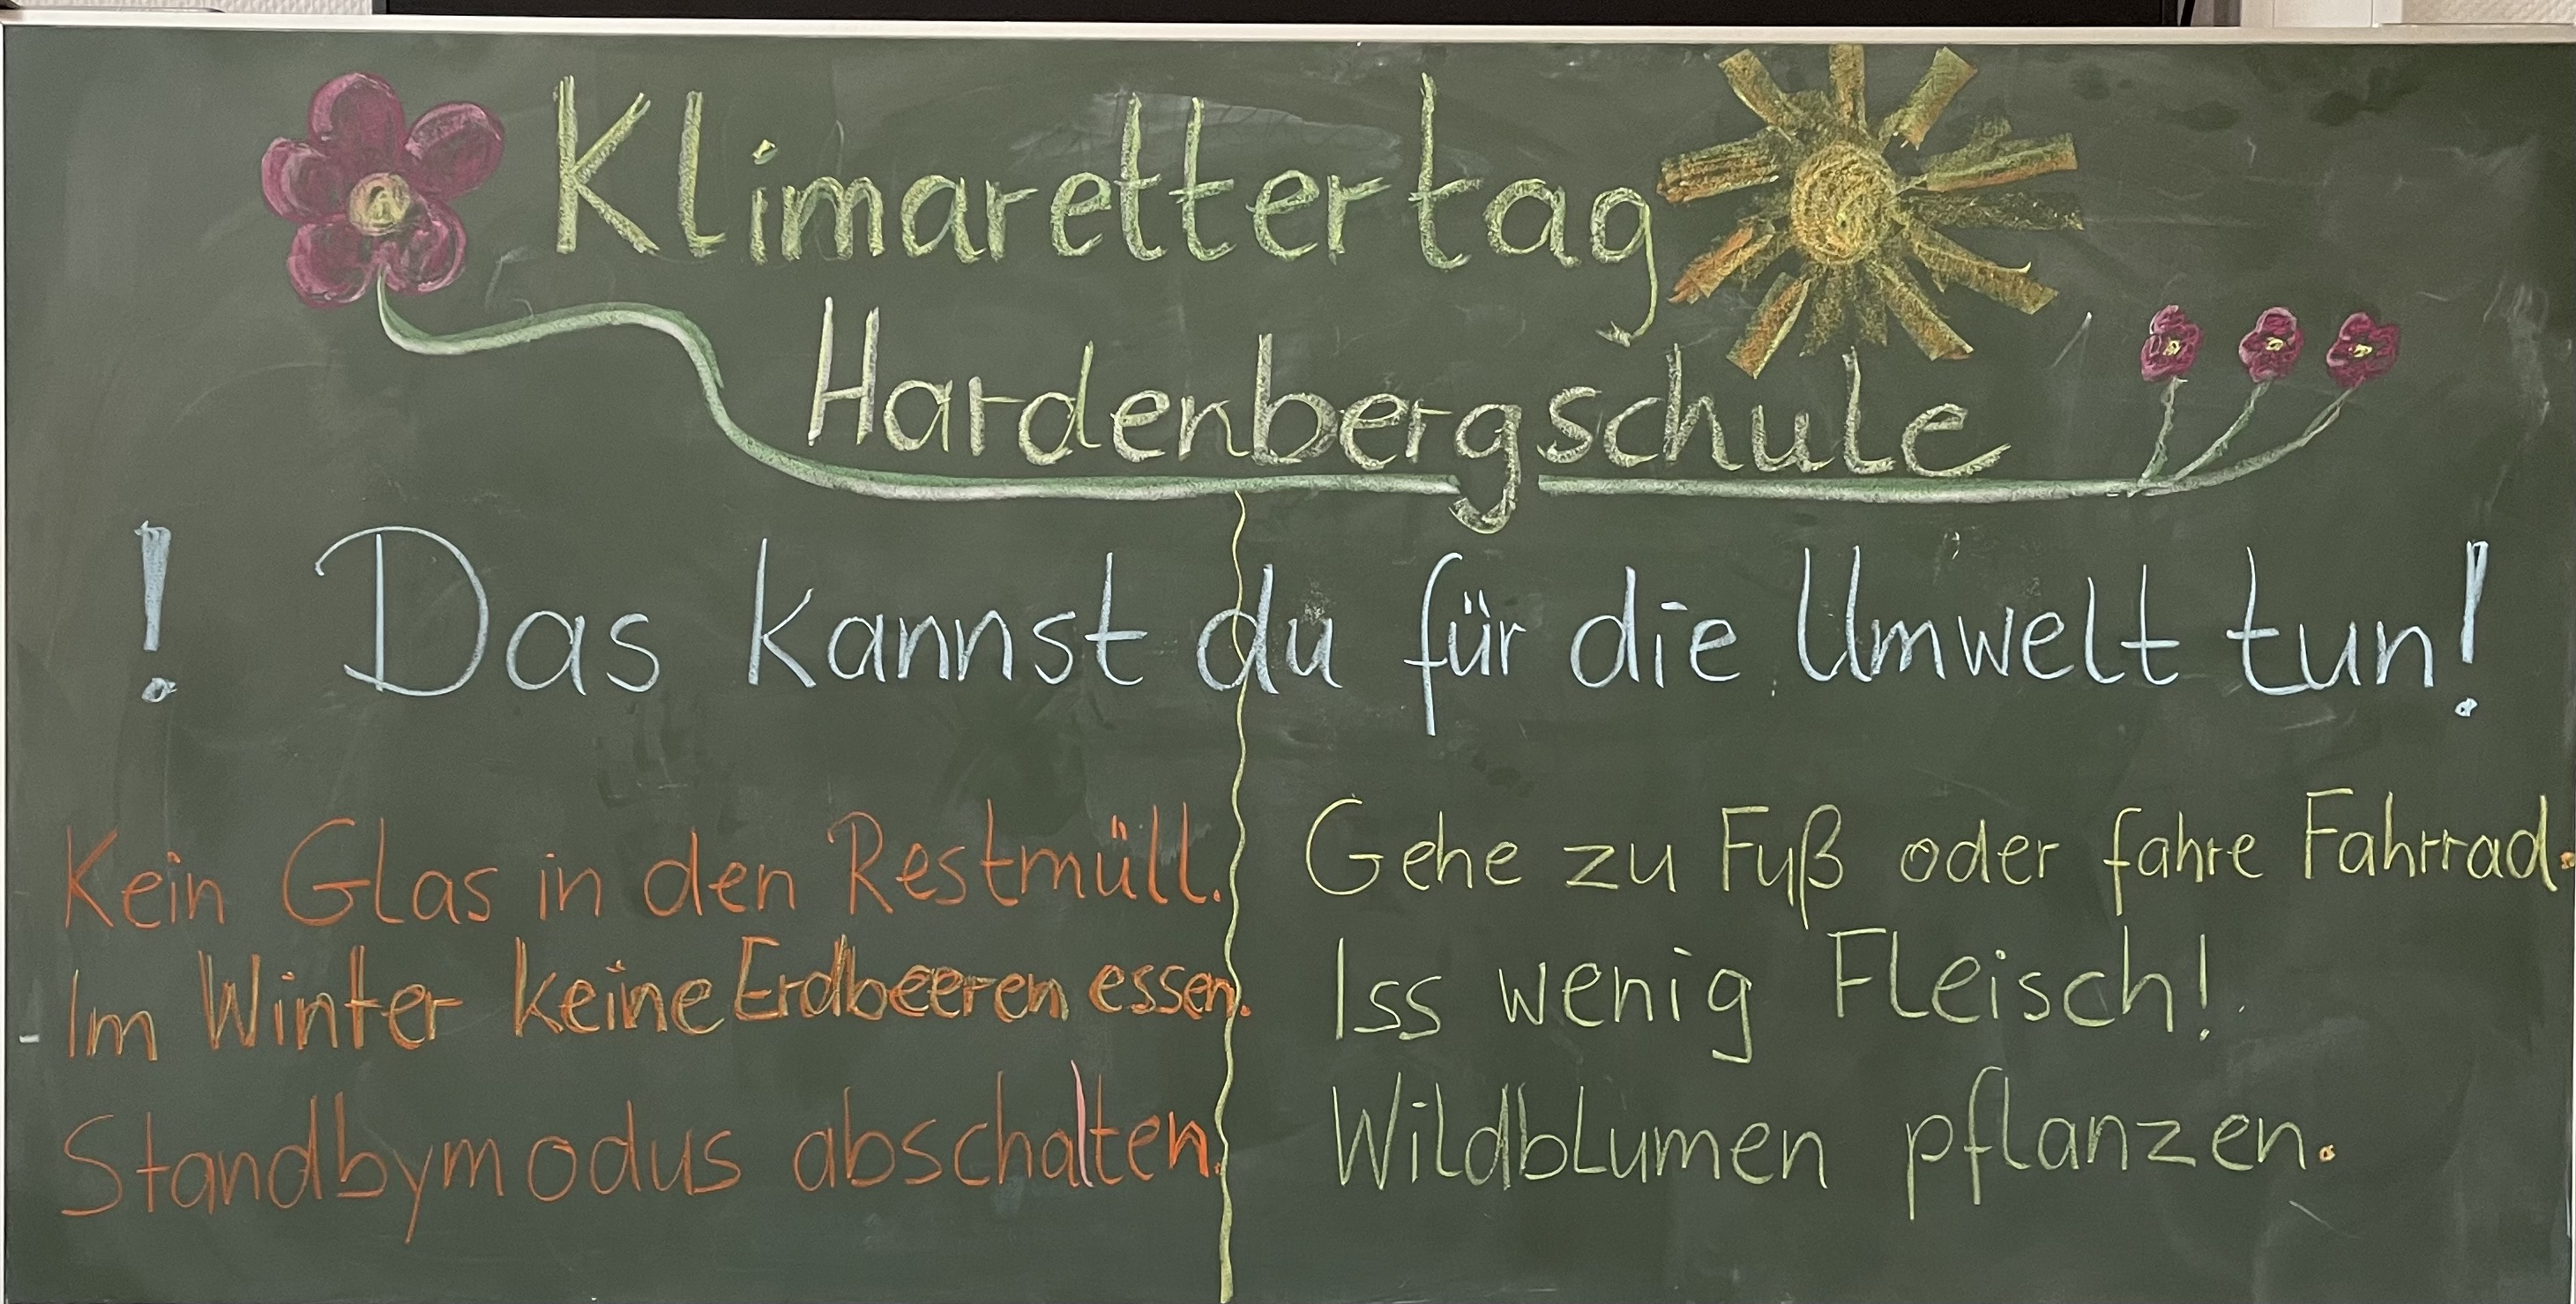 Klimarettertag
Hardenbergschule
! Das kannst du für die Umwelt tun!
Kein Glas in den Restmüll.
Im Winter keine Erdbeeren essen.
Standbymodus abschalten.
Gehe zu Fuß oder fahre Fahrrad.
Iss wenig Fleisch!
Wildblumen pflanzen.